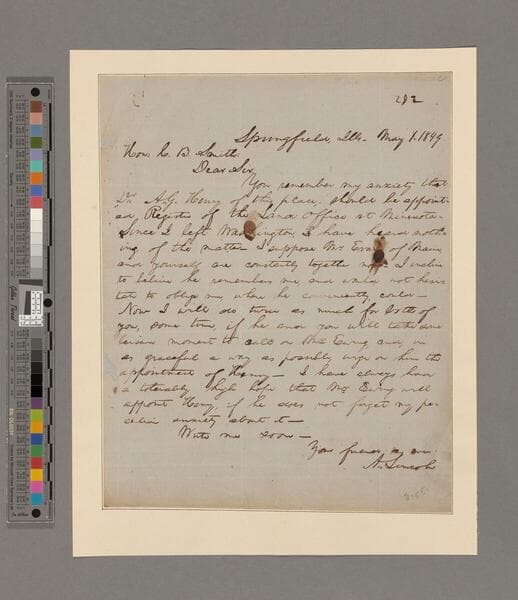 292
Springfield, Ills. May 1. 1849
Hon. C. B. Smith.
Dear Sir
You remember my anxiety that
Dr. A. G. Henry of this place, should be appoint-
ed, Register of the Land Office at Minesota-
Since I left Washington I have heard noth-
ing of the matter- I suppose Mr. Evans of Maine
and yourself are constantly together now- I incline
to believe he remembers me and would not hesi-
tate to oblige me, where he conveniently could-
Now I will do twice as much for both of
you, some time, if he and you will take some
leisure moment to call on Mr. Ewing and, in
as graceful a way as possible urge on him the
appointment of Henry- I have always had
a tolerably high hope that Mr. Ewing will
appoint Henry, if he does not forget my pe-
culiar anxiety about it-
Write me soon-
Your friend, as ever
A. Lincoln